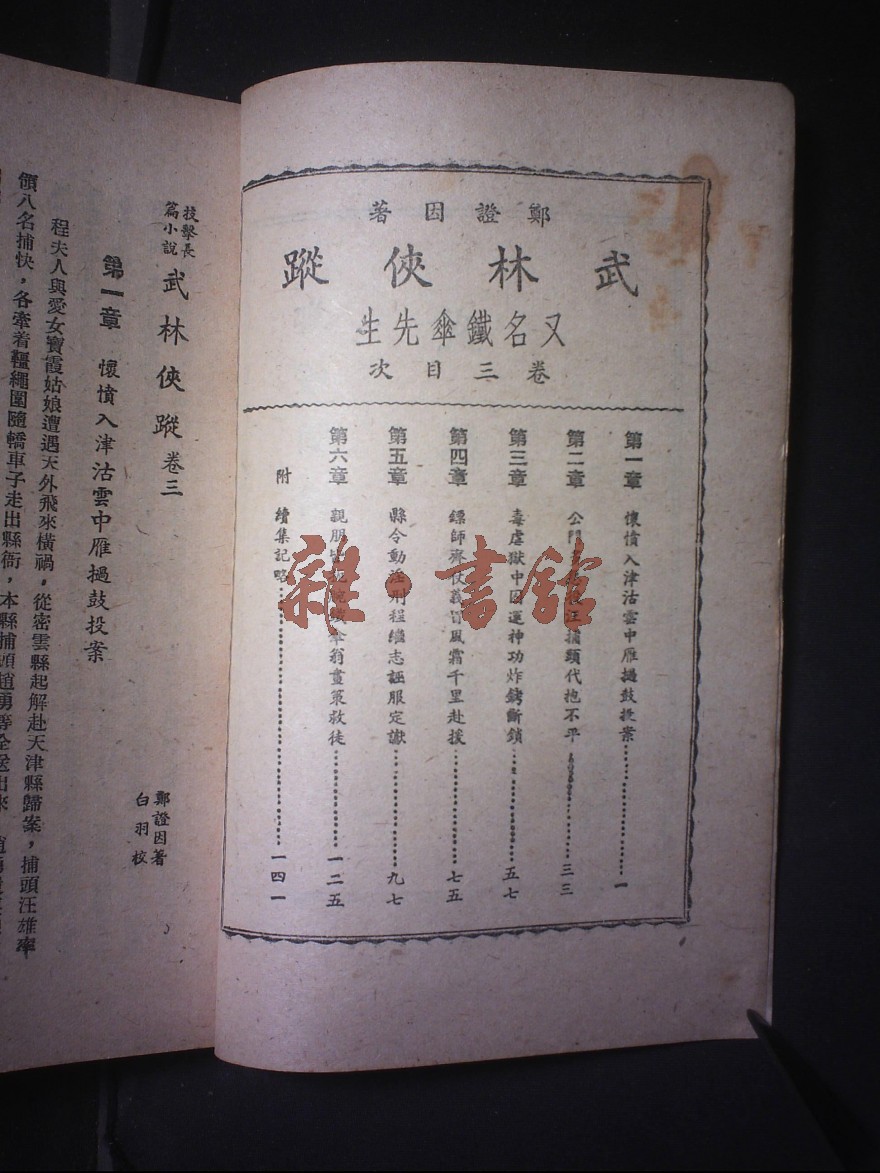 鄭證因著
武林俠蹤
又名鐵傘先生
卷三目次
第一章 懷憤入津沽雲中雁撾鼓投案 一
第二章 公門 汪捕頭代抱不平 三三
第三章 毒虐獄中囚運神功炸銬斷鎖 五七
第四章 鏢師齊仗義冒風霜千里赴援 七五
第五章 縣令動淫刑程繼志誣服定讞 九七
第六章 親朋 傘翁畫策救徒 一二五
附 續集記略 一四一
技擊長篇小說 武林俠蹤 卷三
鄭證因著
白羽校
第一章 懷憤入津沽雲中雁撾鼓投案
程夫人與愛女寶霞姑娘遭遇天外飛來橫禍,從密雲縣起解赴天津縣歸案,捕頭汪雄率
領八名捕快,各牽着韁繩圍隨轎車子走出縣衙,本縣捕頭趙勇等全送出來
雜·書館